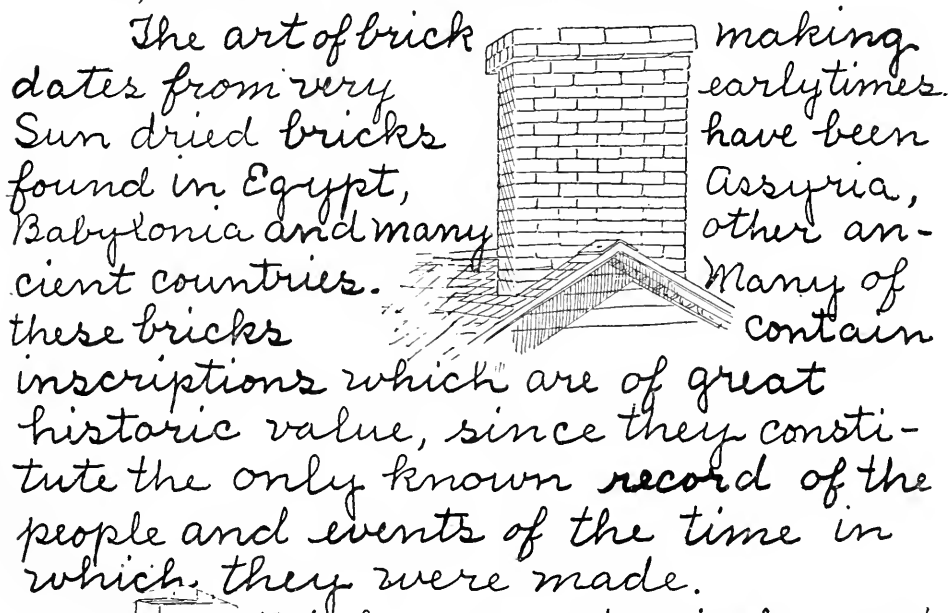 The art of brick making
dates from very early times.
Sun dried bricks have been
found in Egypt, Assyria,
Babylonia and many other an-
cient countries. Many of
these bricks contain
inscriptions which are of great
historic value, since they consti-
tute the only known record of the
people and events of the time in
which they were made.